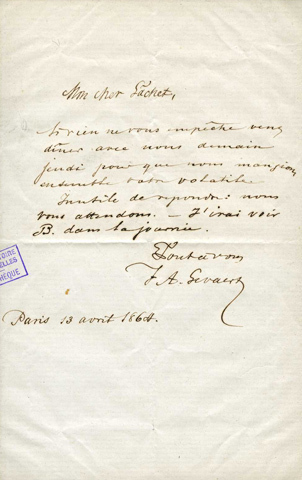 Mon cher Gachet,
Si rien ne vous empêche venez
dîner avec nous demain
jeudi pour que nous mangions
ensemble votre volatile
Inutile de répondre: nous
vous attendons. — J'irai voir
B. dans la journée.
Tout à vous
F. A. Gevaert
Paris 13 avril 1864.